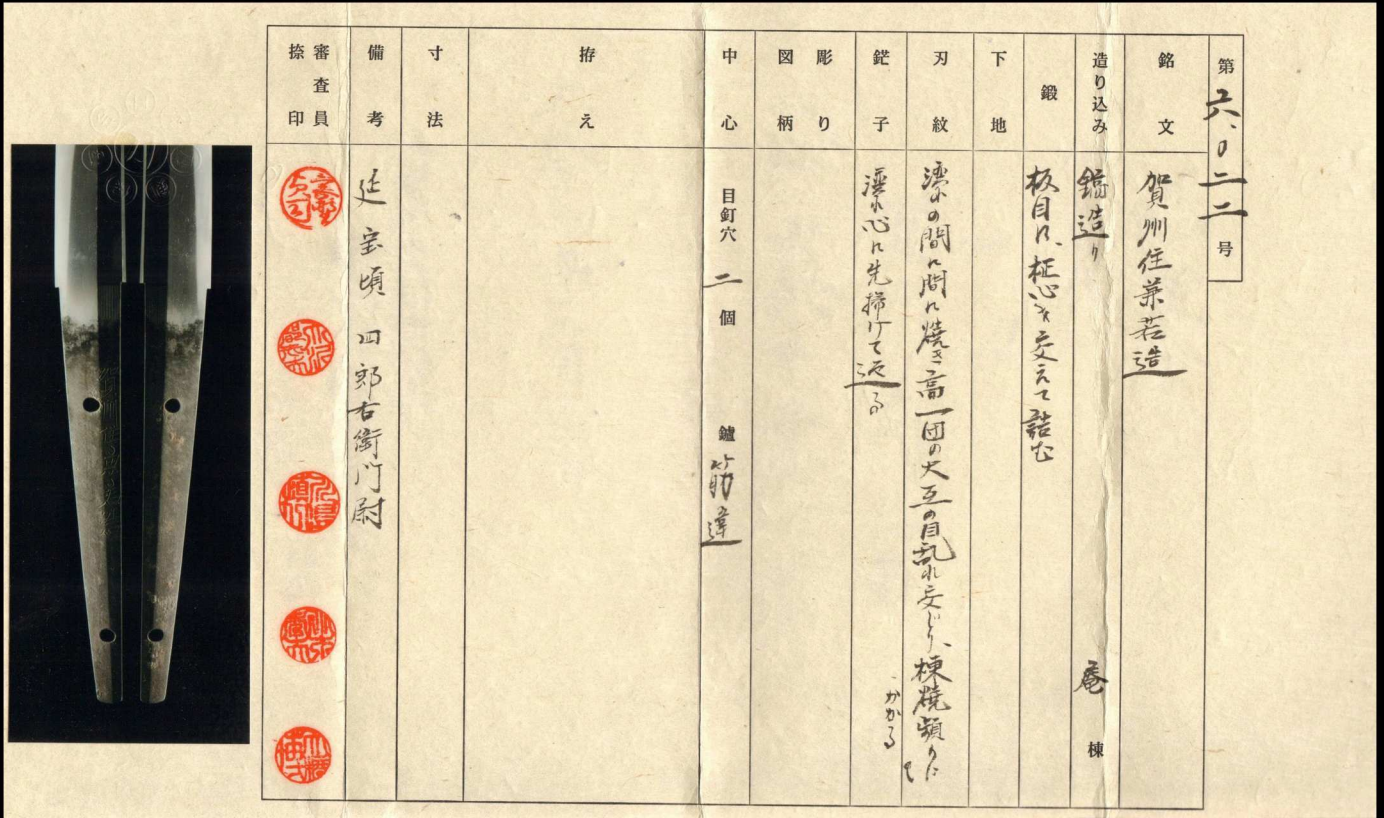 第六、〇二二号
銘文
賀州住兼若造
造り込み
鎬造り 庵棟
鍛
板目に、柾心を交えて詰む
下地
刃紋
湾れの間に間に焼き高一団の大互の目乱れ交じり、棟焼頻りに
かかる
鋩子
湾れ心に先掃けて返る
彫り
図柄
中心
目釘穴 二 個 鑢 筋違
拵え
寸法
備考
延宝頃 四郎右衛門尉
審査員
捺印